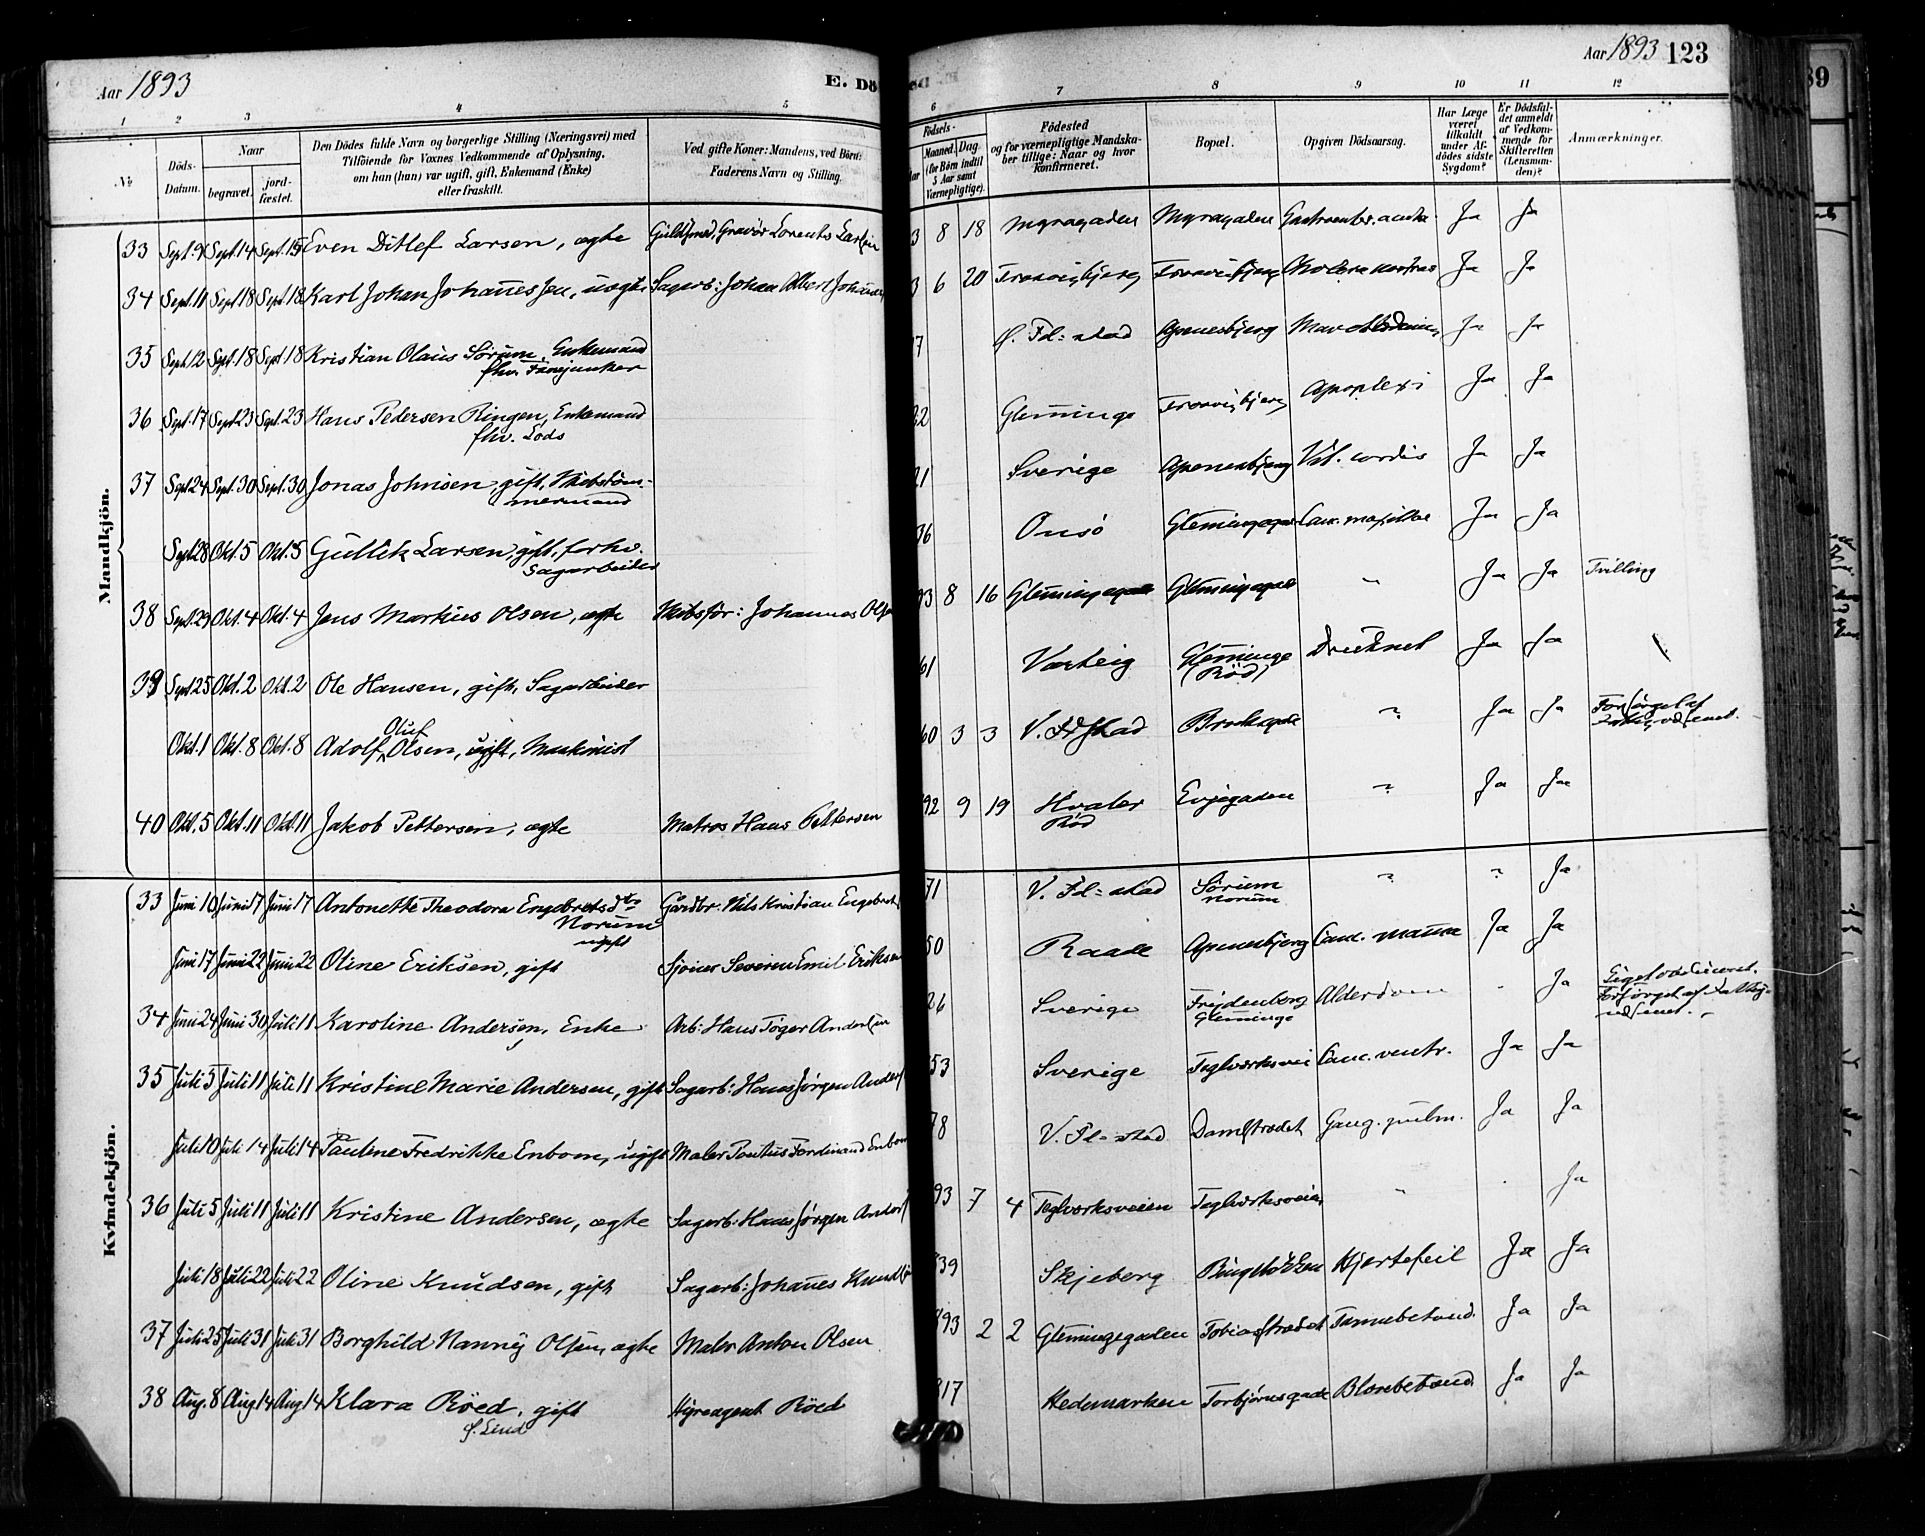 Aar 1893
E. Dö
1 2 3 4 5
No
Döds-Datum.
Naar
begravet.
jord-fæstet.
Den Dödes fulde Navn og borgerlige Stilling (Næringsvei) med
Tilföiende for Voxnes Vedkommende af Oplysning,
om han (hun) var ugift, gift, Enkemand (Enke)
eller fraskilt.
Ved gifte Koner: Mandens, ved Börn:
Faderens Navn og Stilling.
Mandkjön.
33 Sept. 9 Sept. 14 Sept. 15 Even Ditlef Larsen, ægte Guldsmed, Gravör Lorents Larsen
34 Sept. 11 Sept. 18 Sept. 18 Karl Johan Johannessen, uægte Sagarb: Johan Albert Johannes
35 Sept. 12 Sept. 18 Sept. 18 Kristian Olaus Sörum, Enkemand
fhv. Fanejunker
36 Sept. 17 Sept. 23 Sept. 23 Hans Pedersen Ringen, Enkemand
fhv. Lods
37 Sept. 24 Sept. 30 Sept. 30 Jonas Johnsen, gift, Skibstöm-
mermand
Sept. 28 Okt. 5 Okt. 5 Gullik Larsen, gift, forhv.
Sagarbeider
38 Sept. 29 Okt. 4 Okt. 4 Jens Markus Olsen, ægte Skibsför: Johannes Olsen
39 Sept. 25 Okt. 2 Okt. 2 Ole Hansen, gift, Sagarbeider
Oluf
Okt. 1 Okt. 8 Okt. 8 Adolf Olsen, ugift, Maskinist
40 Okt. 5 Okt. 11 Okt. 11 Jakob Pettersen, ægte Matros Hans Pettersen
Kvindekjön.
33 Juni 10 Juni 17 Juni 17 Antonette Theodora Engebretsdtr Gårdbr. Nils Kristian Engebrets
Norum
ugift
Juni 17 Juni 22 Juni 22 Oline Eriksen, gift Sjömd Severin Emil Eriksen
34 Juni 24 Juni 30 Juli 11 Karoline Andersen, Enke Arb: Hans Töger Andersen
35 Juli 5 Juli 11 Juli 11 Kristine Marie Andersen, gift Sagarb: Hans Jörgen Anders
Juli 10 Juli 14 Juli 14 Pauline Fredrikke Enbom, ugift Maler Pontus Ferdinand Enbom
36 Juli 5 Juli 11 Juli 11 Kristine Andersen, ægte Sagarb: Hans Jörgen Anders
Juli 18 Juli 22 Juli 22 Oline Knudsen, gift Sagarb: Johannes Knuds
37 Juli 25 Juli 31 Juli 31 Borghild Nanny Olsen, ægte Maler Anton Olsen
38 Aug. 8 Aug 14 Aug 14 Klara Röed, gift Hyreagent Röed
f. Lund
Aar 1893 123
6 7 8 9 10 11 12
Födsels-
Maaned. Dag.
(for Börn indtil
5 Aar samt
Værnepligtige).
Födested
og for værnepligtige Mandska-
ber tillige: Naar og hvor
konfirmeret.
Bopæl.
Opgiven Dödsaarsag.
Har Læge
været
tilkaldt
under Af-
dödes sidste
Sygdom?
Er Dödsfal-
det anmeldt
af Vedkom-
mende for
Skifteretten
(Lensman-
den)?
Anmærkninger.
3 8 18 Myragaden Myragaden Gastroenter. acuta Ja Ja
3 6 20 Trosvigbjerg Trosvigbjerg Cholera nostras Ja Ja
7 Ø. Fd:stad Apenesbjerg Ja Ja
22 Glemminge Trosvigbjerg Apoplexi Ja Ja
21 Sverige Apenesbjerg Vit. cordis Ja Ja
36 Onsö Glemmingegade Canc. maxillae Ja Ja
93 8 16 Glemmingegade Glemmingegade " Ja Ja Tvilling
61 Varteig Glemminge Druknet Ja Ja
(Röd)
60 3 3 V. Fdstad Brochsgade " Ja Ja
92 9 19 Hvaler Evjegaden " Ja Ja
Röd
71 V. Fd:stad Sörum " " Ja
Norum
50 Raade Apenesbjerg Canc. mamma Ja Ja
26 Sverige Frydenberg Alderdom Ja
Glemminge
53 Sverige Teglværksvei Canc. ventr. Ja Ja
78 V. Fd:stad Damstrædet Gang. pulm. Ja Ja
93 7 4 Teglværksveien Teglværksveien " Ja
39 Skjeberg Hjertefeil Ja Ja
93 2 2 Glemmingegaden Tobiasstrædet Ja Ja
17 Hedemarken Torbjörnsgade Ja Ja